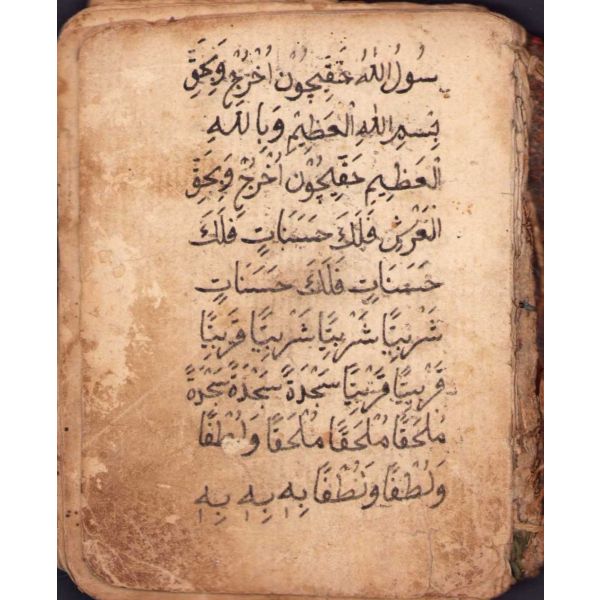 سُولُ اللهُ حَقِيحُونْ اُخْرُجْ وَبِحَقِّ
بِسْمِ اللهِ الْعَظِيمِ وَبِاللهِ
الْعَظِيمِ حَقِيحُونْ اُخْرُجْ وَبِحَقِّ
الْعَرْشِ فَلَكَ حَسَنَاتٍ فَلَكَ
حَسَنَاتٍ فَلَكَ حَسَنَاتٍ
شَرْبِيًّا شَرْبِيًّا شَرْبِيًّا قَرْبِيًّا
قَرْبِيًّا قَرْبِيًّا سَجْدَةً سَجْدَةً سَجْدَةً
مُلْحَقًا مُلْحَقًا مُلْحَقًا وَلُطْفًا
وَلُطْفًا وَلُطْفًا بِهِ بِهِ بِهِ